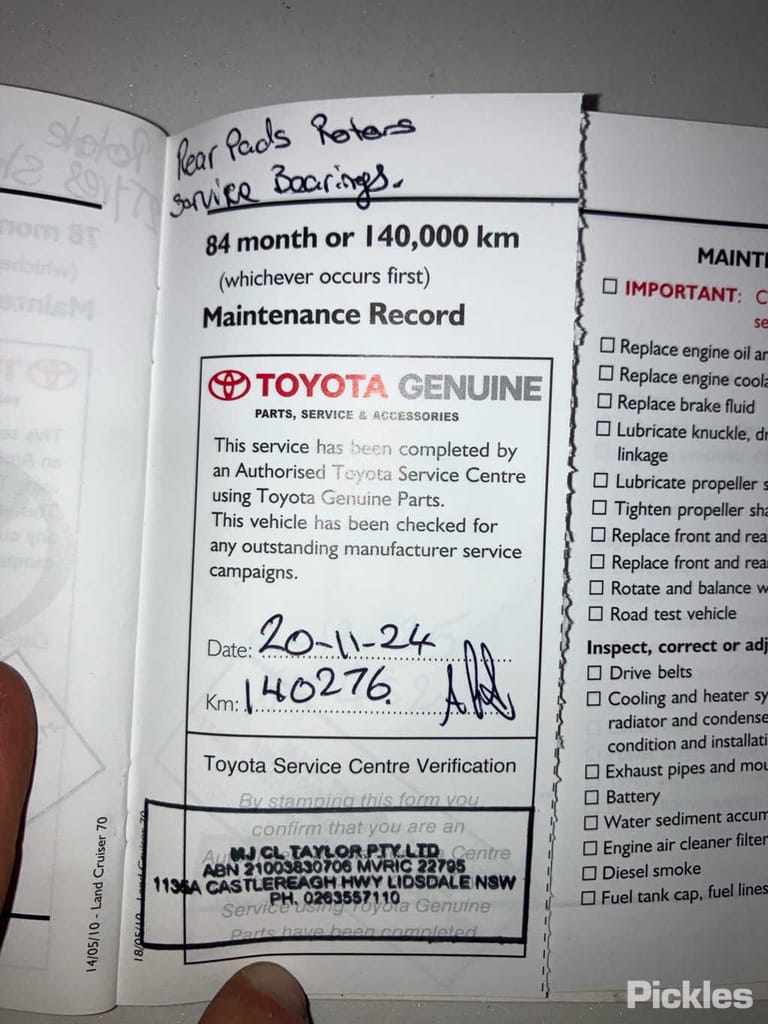 Rear Pads Rotors
Service Bearings.
84 month or 140,000 km
(whichever occurs first)
Maintenance Record
TOYOTA GENUINE
PARTS, SERVICE & ACCESSORIES
This service has been completed by
an Authorised Toyota Service Centre
using Toyota Genuine Parts.
This vehicle has been checked for
any outstanding manufacturer service
campaigns.
Date: 20-11-24
Km: 140276.
Toyota Service Centre Verification
By stamping this form you
confirm that you are an
Centre
MJ CL TAYLOR PTY LTD
ABN 21003830706 MVRIC 22795
1136A CASTLEREAGH HWY LIDSDALE NSW
PH. 0263557110
Service using Toyota Genuine
Parts have been completed
14/05/10 - Land Cruiser 70
18/05/10 - Land Cruiser 70
MAINT
IMPORTANT: C
se
Replace engine oil an
Replace engine coola
Replace brake fluid
Lubricate knuckle, dr
linkage
Lubricate propeller s
Tighten propeller sha
Replace front and rea
Replace front and rea
Rotate and balance w
Road test vehicle
Inspect, correct or adj
Drive belts
Cooling and heater sy
radiator and condense
condition and installati
Exhaust pipes and mou
Battery
Water sediment accum
Engine air cleaner filter
Diesel smoke
Fuel tank cap, fuel lines
Pickles